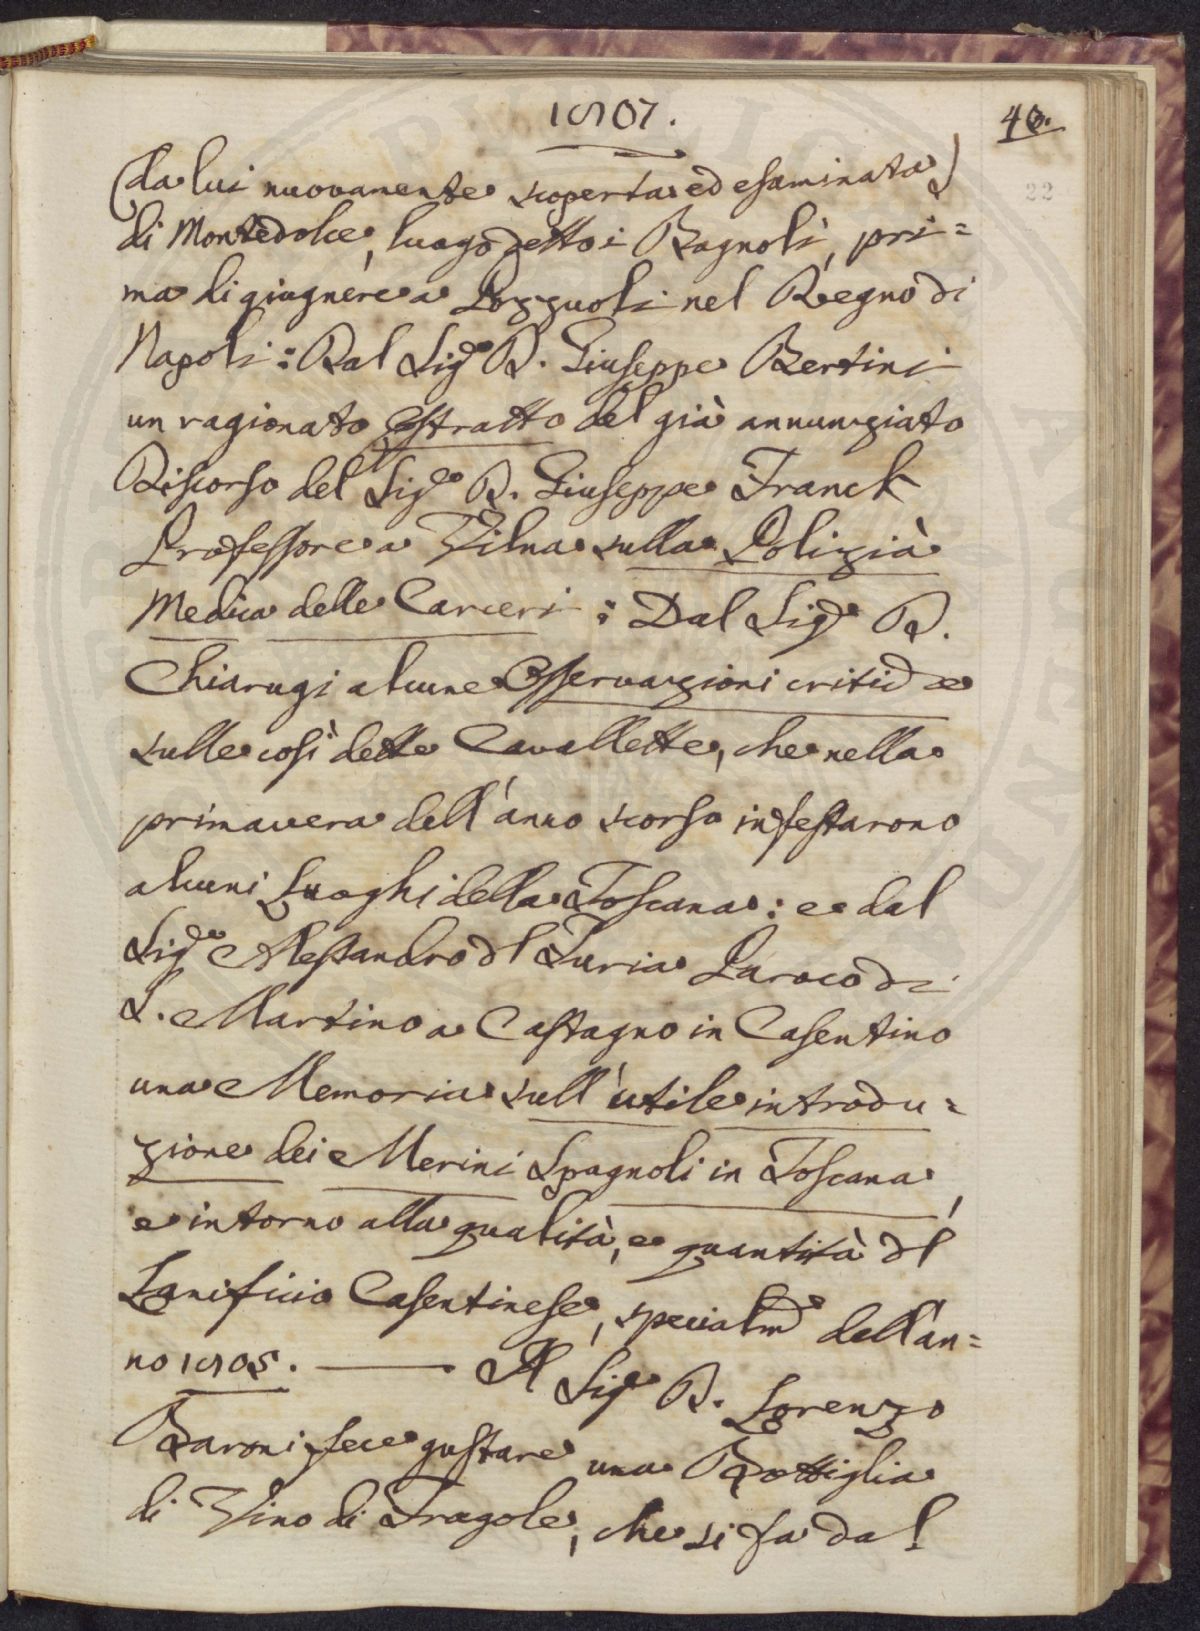 1807.
40.
22
(da lui nuovamente scoperta ed esaminata)
di Montedolce, luogo detto i Bagnoli, pri=
ma di giugnere a Pozzuoli nel Regno di
Napoli: Dal Sig.e D. Giuseppe Bertini
un ragionato estratto del già annunziato
Discorso del Sig.e D. Giuseppe Franck
Professore a Vilna sulla Polizia
Medica delle Carceri: Dal Sig.e D.
Chiarugi alcune Osservazioni critiche
sulle così dette Cavallette, che nella
primavera dell'anno scorso infestarono
alcuni Luoghi della Toscana: e dal
Sig.e Alessandro del Turia Paroco di
S. Martino a Castagno in Casentino
una Memoria sull'utile introdu=
zione dei Merini Spagnoli in Toscana,
e intorno alla qualità, e quantità del
Lanificio Casentinese, specialm.e dell'an=
no 1805. —— Il Sig.e D. Lorenzo
Baroni fece gustare una Bottiglia
di Vino di Fragole, che si fa dal